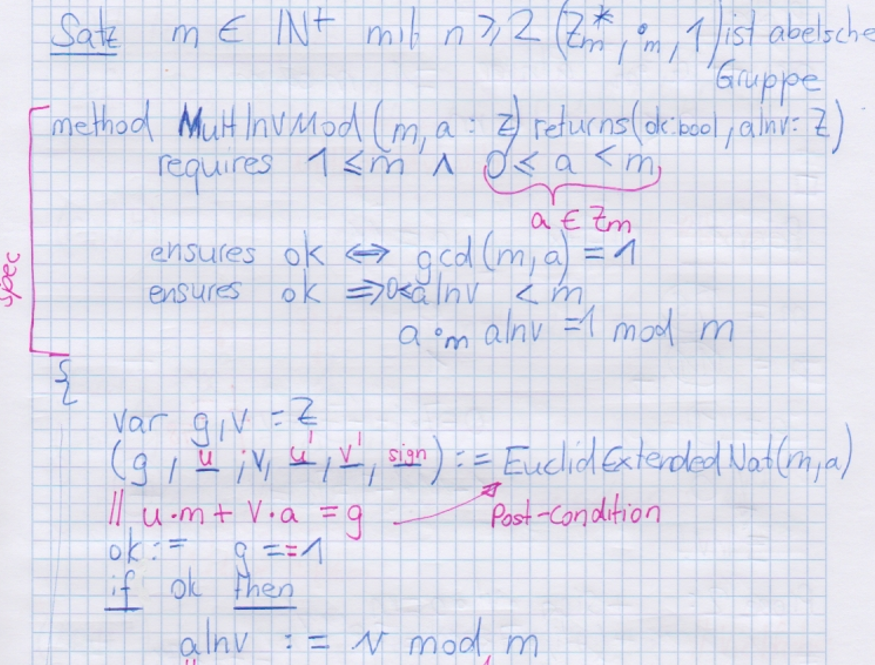 Satz m ∈ ℕ⁺ mit n ≥ 2 (ℤm*, ·m, 1) ist abelsche
Gruppe
method MultInvMod(m, a : ℤ) returns(ok:bool, aInv: ℤ)
requires 1 ≤ m ∧ 0 ≤ a < m
a ∈ ℤm
spec
ensures ok ⇔ gcd(m, a) = 1
ensures ok ⇒ 0≤aInv < m
a ·m aInv =1 mod m
{
var g, v = ℤ
(g, u, v, u', v', sign) := EuclidExtendedNat(m,a)
// u·m + v·a = g Post-condition
ok := g == 1
if ok then
aInv := v mod m